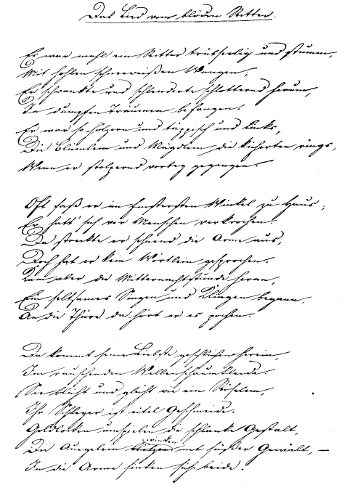 Das Lied vom blöden Ritter.
Es war mahl ein Ritter trübseelig und stumm,
Mit hohlen schneeweißen Wangen,
Er schwankte und schlenderte schlotternd herum,
In dumpfen Träumen befangen.
Er war so hölzern und täppisch und links,
Die Blümlein und Mägdlein die kicherten rings,
Wenn er stolpernd vorbey gegangen.
Oft saß er im finstersten Winkel zu Haus;
Er hatt' sich vor Menschen verkrochen.
Da streckte er sehnend die Arme aus,
Doch hat er kein Wörtlein gesprochen.
Kam aber die Mitternachtstunde heran,
Ein seltsames Singen und Klingen begann,
An die Thüre da hört er es pochen.
Da kommt seine Liebste geschlichen herein,
Im rauschenden Wellenschaumkleide.
Sie blüht und glüht wie ein Röselein,
Ihr Schleyer ist eitel Geschmeide.
Goldlocken umspielen die schlanke Gestalt,
Die Aeuglein winken mit süßer Gewalt, –
In die Arme sinken sich beide.